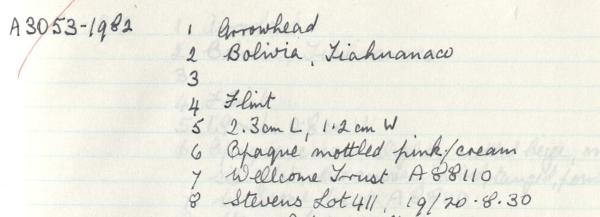 A3053-1982 1 Arrowhead
2 Bolivia, Tiahuanaco
3
4 Flint
5 2.3cm L, 1.2cm W
6 Opaque mottled pink/cream
7 Wellcome Trust A88110
8 Stevens Lot 411, 19/20.8.30